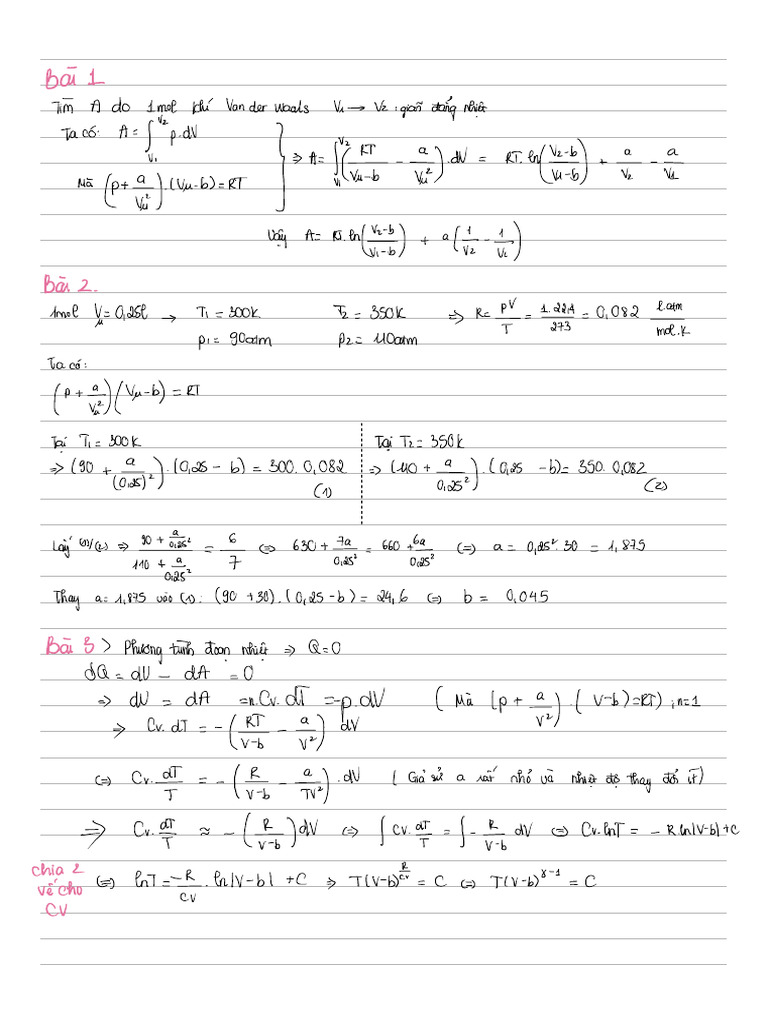 Bài 1
Tìm A do 1mol khí Van der Waals V₁ → V₂ : giãn đẳng nhiệt
Ta có: A = ∫_{V₁}^{V₂} p.dV
Mà (p + a/Vμ²).(Vμ-b) = RT
⇒ A = ∫_{V₁}^{V₂} (RT/(Vμ-b) - a/Vμ²).dV = RT.ln((V₂-b)/(V₁-b)) + a/V₂ - a/V₁
Vậy A = RT.ln((V₂-b)/(V₁-b)) + a(1/V₂ - 1/V₁)
Bài 2.
1mol Vμ = 0,25l → T₁ = 300K T₂ = 350K ⇒ R = pV/T = 1.22,4/273 = 0,082 l.atm/mol.K
p₁ = 90atm p₂ = 110atm
Ta có:
(p + a/Vμ²)(Vμ-b) = RT
Tại T₁ = 300K
⇒ (90 + a/(0,25)²).(0,25 - b) = 300.0,082 (1)
Tại T₂ = 350K
⇒ (110 + a/0,25²).(0,25 - b) = 350.0,082 (2)
Lấy (1)/(2) ⇒ (90 + a/0,25²)/(110 + a/0,25²) = 6/7 ⇔ 630 + 7a/0,25² = 660 + 6a/0,25² ⇔ a = 0,25².30 = 1,875
Thay a = 1,875 vào (1): (90 + 30).(0,25 - b) = 24,6 ⇔ b = 0,045
Bài 3 > Phương trình đoạn nhiệt ⇒ Q = 0
dQ = dU - dA = 0
⇒ dU = dA = n.Cv.dT = -p.dV ( Mà (p + a/V²).(V-b) = RT) ; n=1
⇒ Cv.dT = -(RT/(V-b) - a/V²) dV
⇔ Cv.dT/T = -(R/(V-b) - a/TV²).dV ( Giả sử a rất nhỏ và nhiệt độ thay đổi ít)
⇒ Cv.dT/T ≈ -(R/(V-b))dV ⇔ ∫Cv.dT/T = ∫-R/(V-b) dV ⇔ Cv.lnT = -R.ln|V-b| + C
chia 2 vế cho CV
⇔ lnT = -R/CV.ln|V-b| + C ⇒ T(V-b)^{R/CV} = C ⇔ T(V-b)^{γ-1} = C